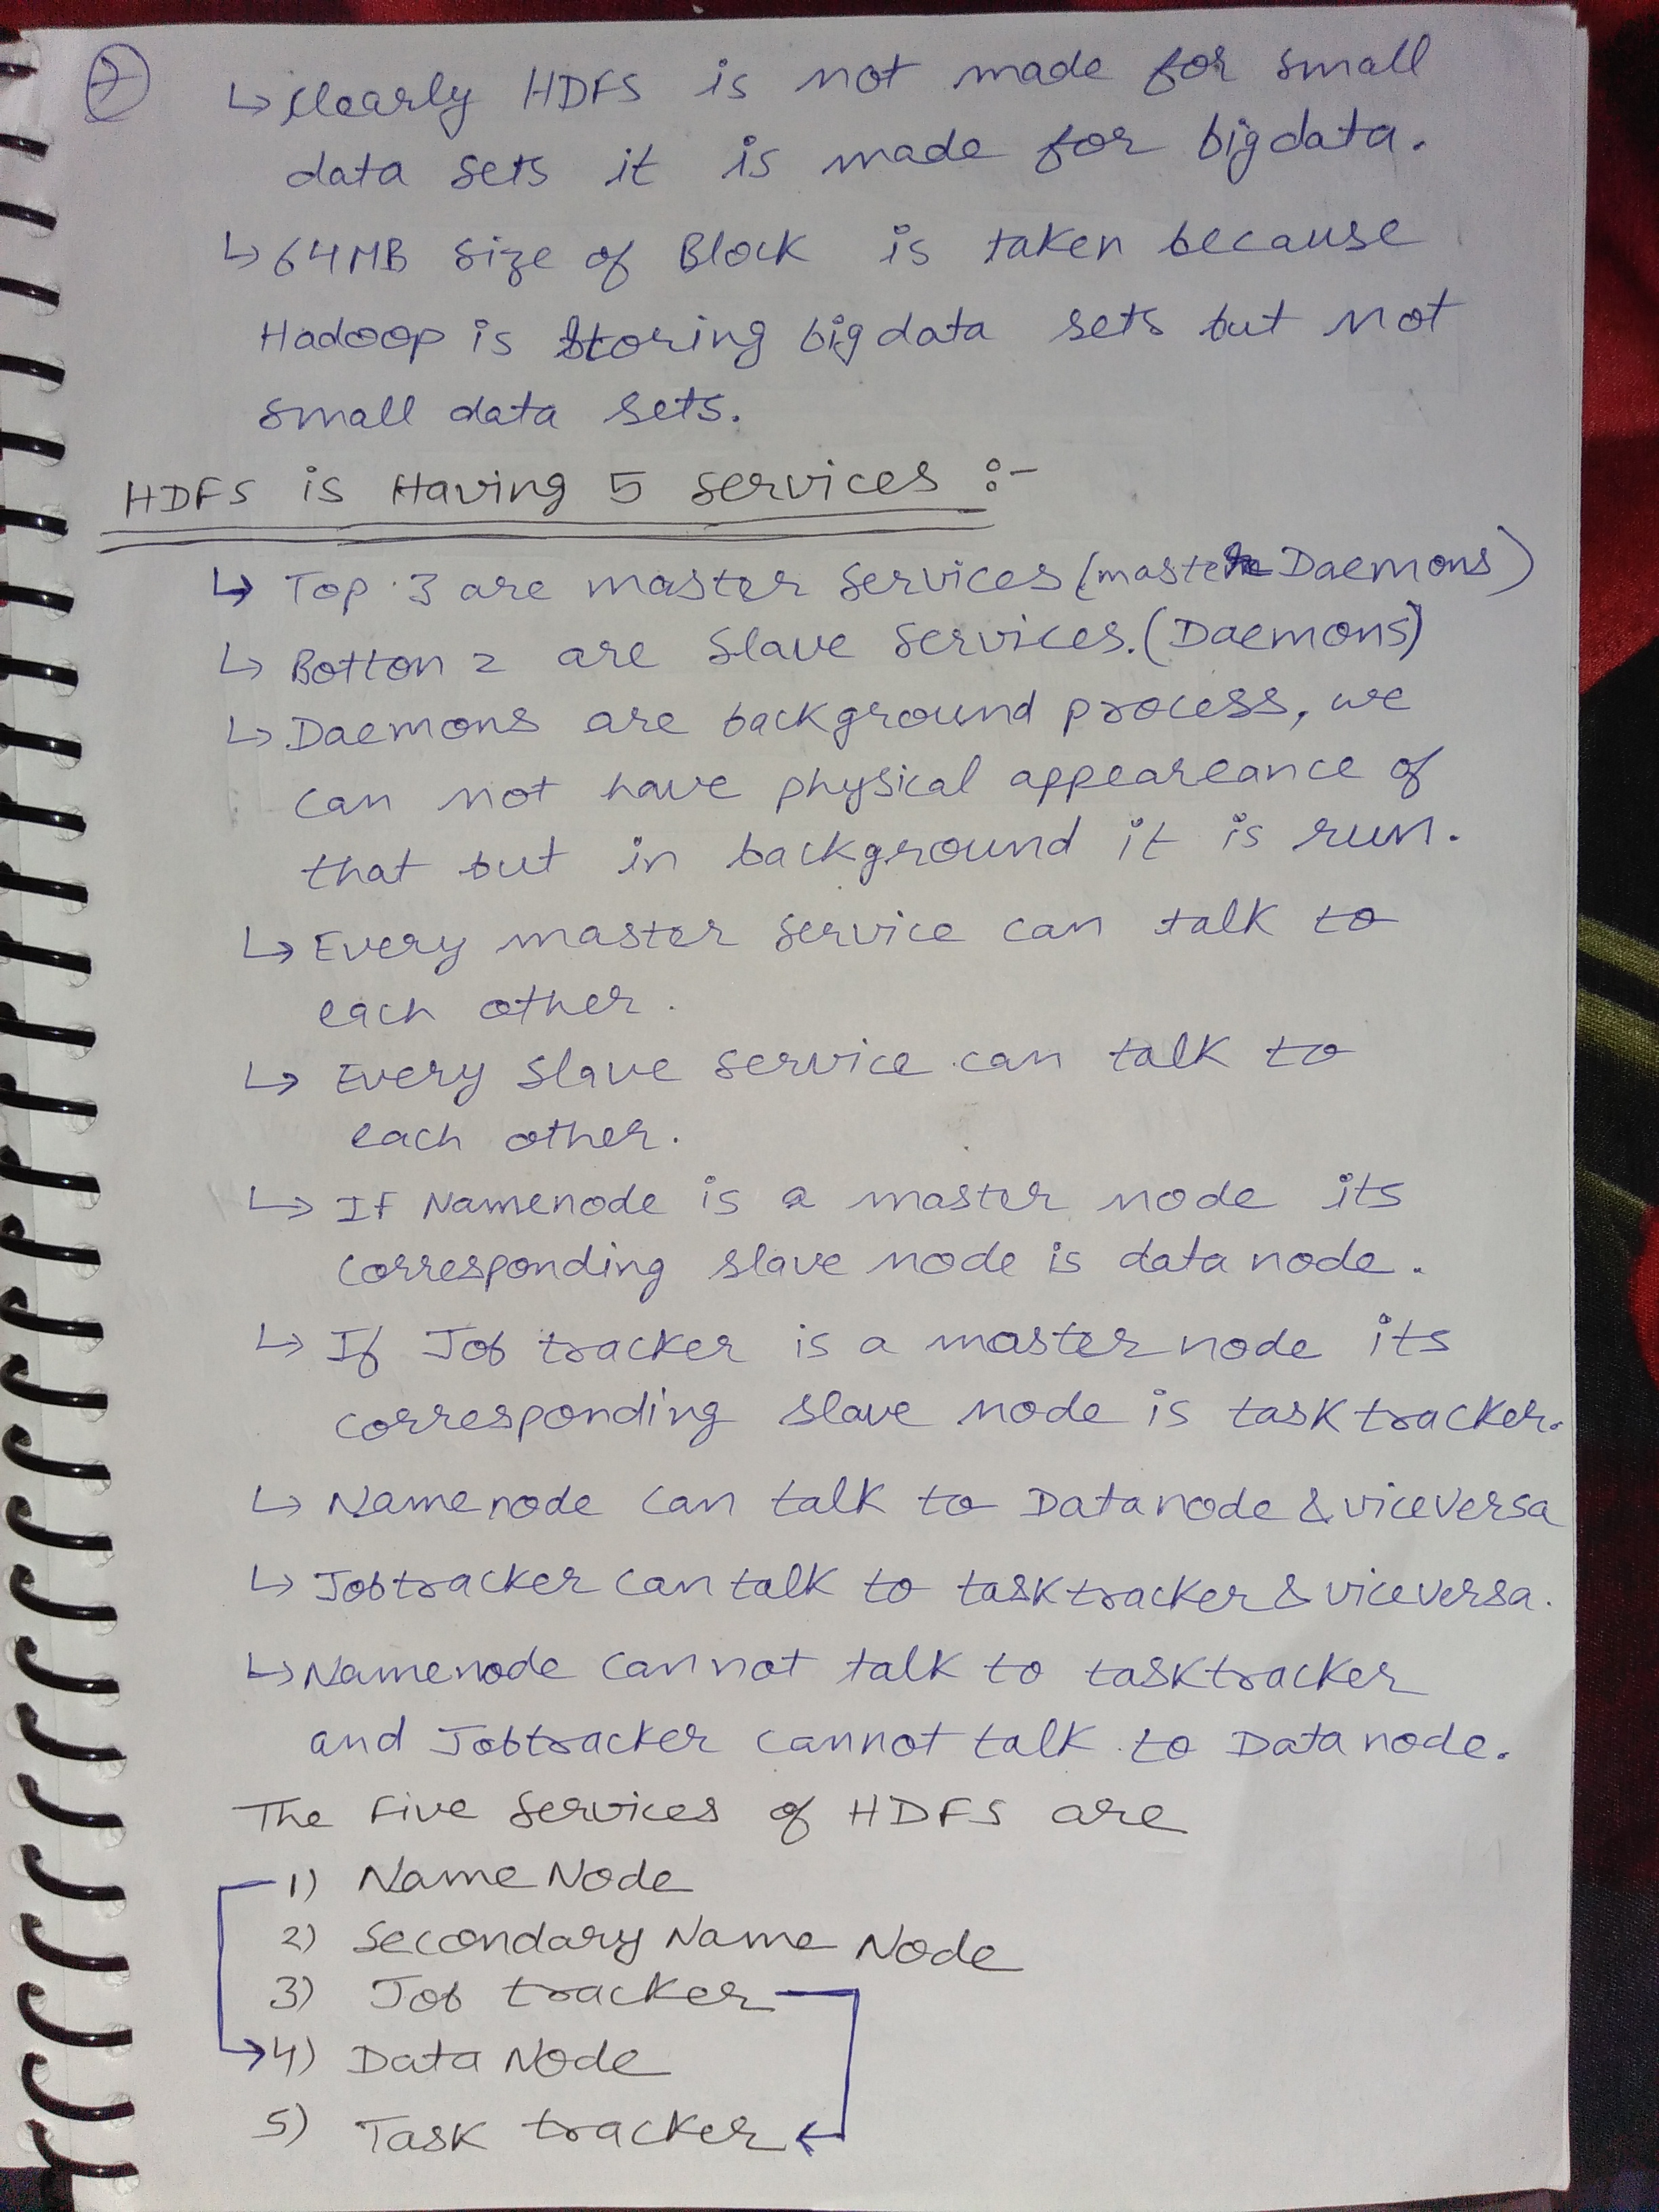 7
↳ Clearly HDFS is not made for small
data sets it is made for bigdata.
↳ 64MB size of Block is taken because
Hadoop is storing bigdata sets but not
small data sets.
HDFS is Having 5 services :-
↳ Top 3 are master services (master Daemons)
↳ Botton 2 are slave services. (Daemons)
↳ Daemons are background process, we
can not have physical appeareance of
that but in background it is run.
↳ Every master service can talk to
each other.
↳ Every slave service can talk to
each other.
↳ If Namenode is a master node its
corresponding slave node is data node.
↳ If Job tracker is a master node its
corresponding slave node is task tracker.
↳ Namenode can talk to Datanode & viceversa
↳ Jobtracker can talk to task tracker & viceversa.
↳ Namenode cannot talk to tasktracker
and Jobtracker cannot talk to Data node.
The Five Services of HDFS are
1) Name Node
2) Secondary Name Node
3) Job tracker
4) Data Node
5) Task tracker